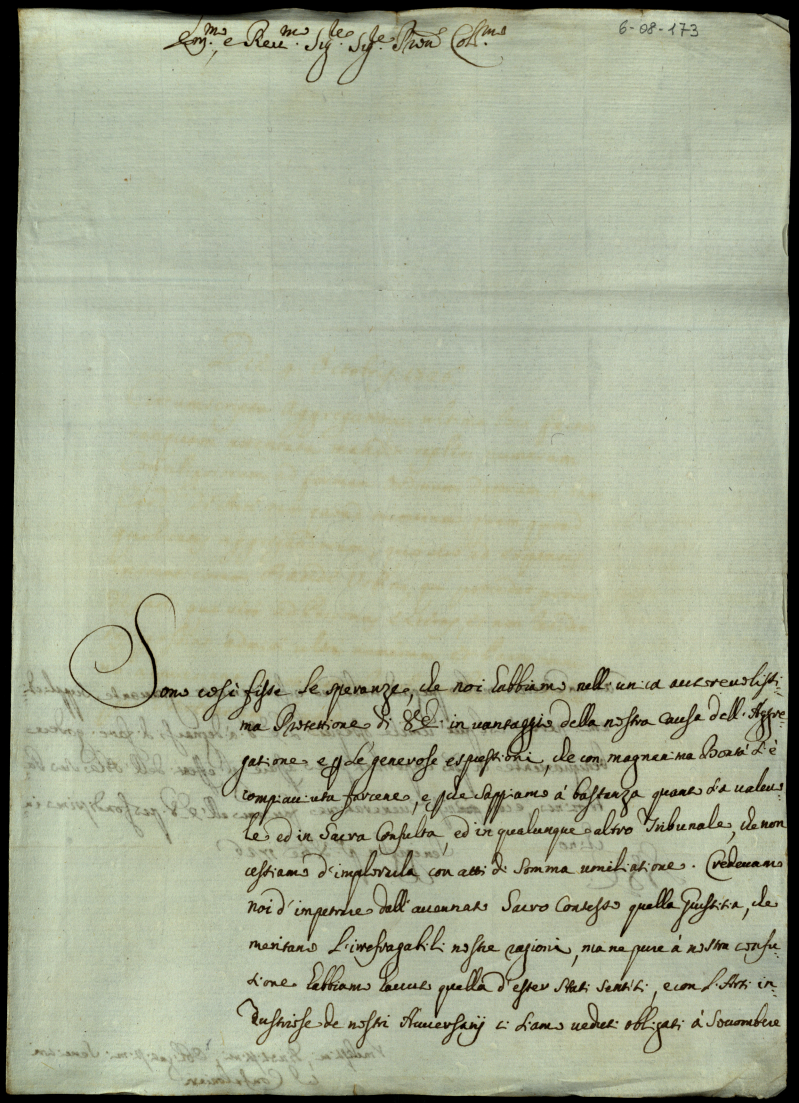 6-08-173
Em.mo e Reu.mo Sig.re Sig.re Pron Col.mo
Sono così fisse le speranze, che noi habbiamo nell'unica autoreuolissi-
ma Protettione di V.E. in uantaggio della nostra Causa dell'Aggre-
gatione e p le generose espressioni, che con magnanima Bontà si è
compiaciuta farcene, e p che sappiamo à bastanza quanto sia ualeuo-
le ed in Sacra Consulta, ed in qualunque altro Tribunale, che non
cessiamo d'implorarla con atti di somma umiliatione. Credeuamo
noi d'impetrare dall'accennato Sacro Contesto quella Giustitia, che
meritano l'irrefragabili nostre ragioni, ma ne pure à nostra confu-
sione habbiamo hauuto quella d'esser stati sentiti, e con l'Arti in-
dustriose de nostri Auuersarij ci siamo ueduti obligati à Soccombere